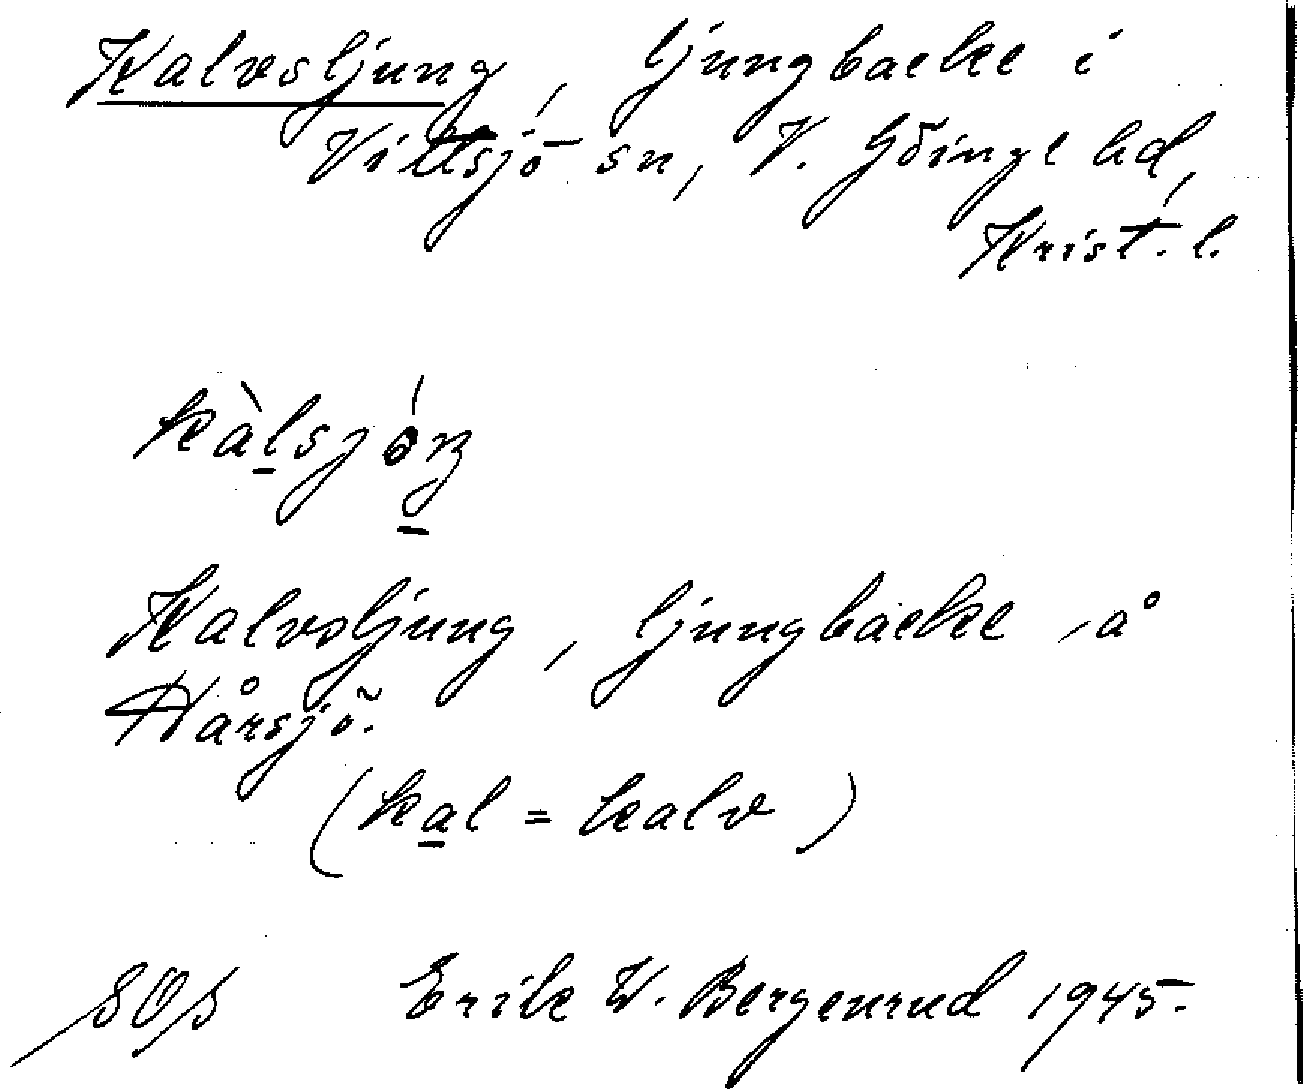 Kalvsljung, ljungbacke i
Vittsjö sn, V. Göinge hd,
Krist. l.
Kalvsljung, ljungbacke å
Hårsjö.
(kal = kalv)
Erik W. Bergenrud 1945.